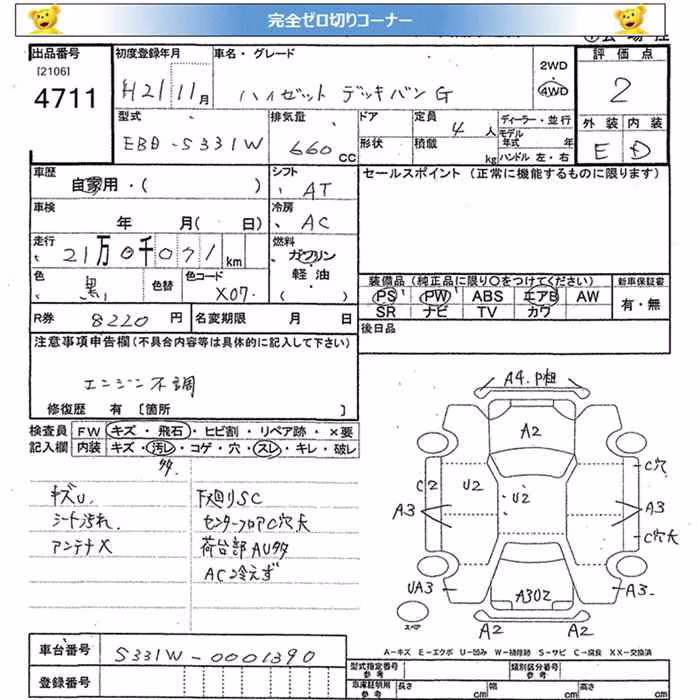 完全ゼロ切りコーナー
出品番号 [2106] 4711
初度登録年月 H21 11月
車名・グレード ハイゼット デッキバンG
2WD 4WD
評価点 2
型式 EBD-S331W
排気量 660 CC
ドア 形状
定員 4 人
積載 kg
ディーラー・並行
モデル年式 年
ハンドル 左・右
外装 内装
E D
車歴 自家用・( )
シフト AT
セールスポイント (正常に機能するものに限ります)
車検 年 月( 日)
冷房 AC
走行 21万0千071 km
燃料 ガソリン 軽・油 ( )
色 黒
色替
色コード X07
装備品 (純正品に限り〇をつけてください)
新車保証書
PS PW ABS エアB AW
有・無
SR ナビ TV カワ
R券 8220 円
名変期限 月 日
後日品
注意事項申告欄 (不具合内容等は具体的に記入して下さい)
エンジン不調
修復歴 有 [箇所 ]
検査員 FW キズ・飛石・ヒビ割・リペア跡・×要
記入欄 内装 キズ・汚レ・コゲ・穴・スレ・キレ・破レ
多
キズU
下廻りSC
シート汚れ
センターフロアC穴大
アンテナX
荷台部AU多
AC冷えず
A4.P粗
A2
C2 U2 U2 C穴
A3 A3
C穴大
UA3 A302 A3
スペア
A2 A2
A-キズ E-エクボ U-凹み W-補修跡 S-サビ C-腐食 XX-交換済
車台番号 S331W-0001390
型式指定番号 参考
類別区分番号 参考
登録番号
車庫証明用 参考 長さ cm 幅 cm 高さ cm